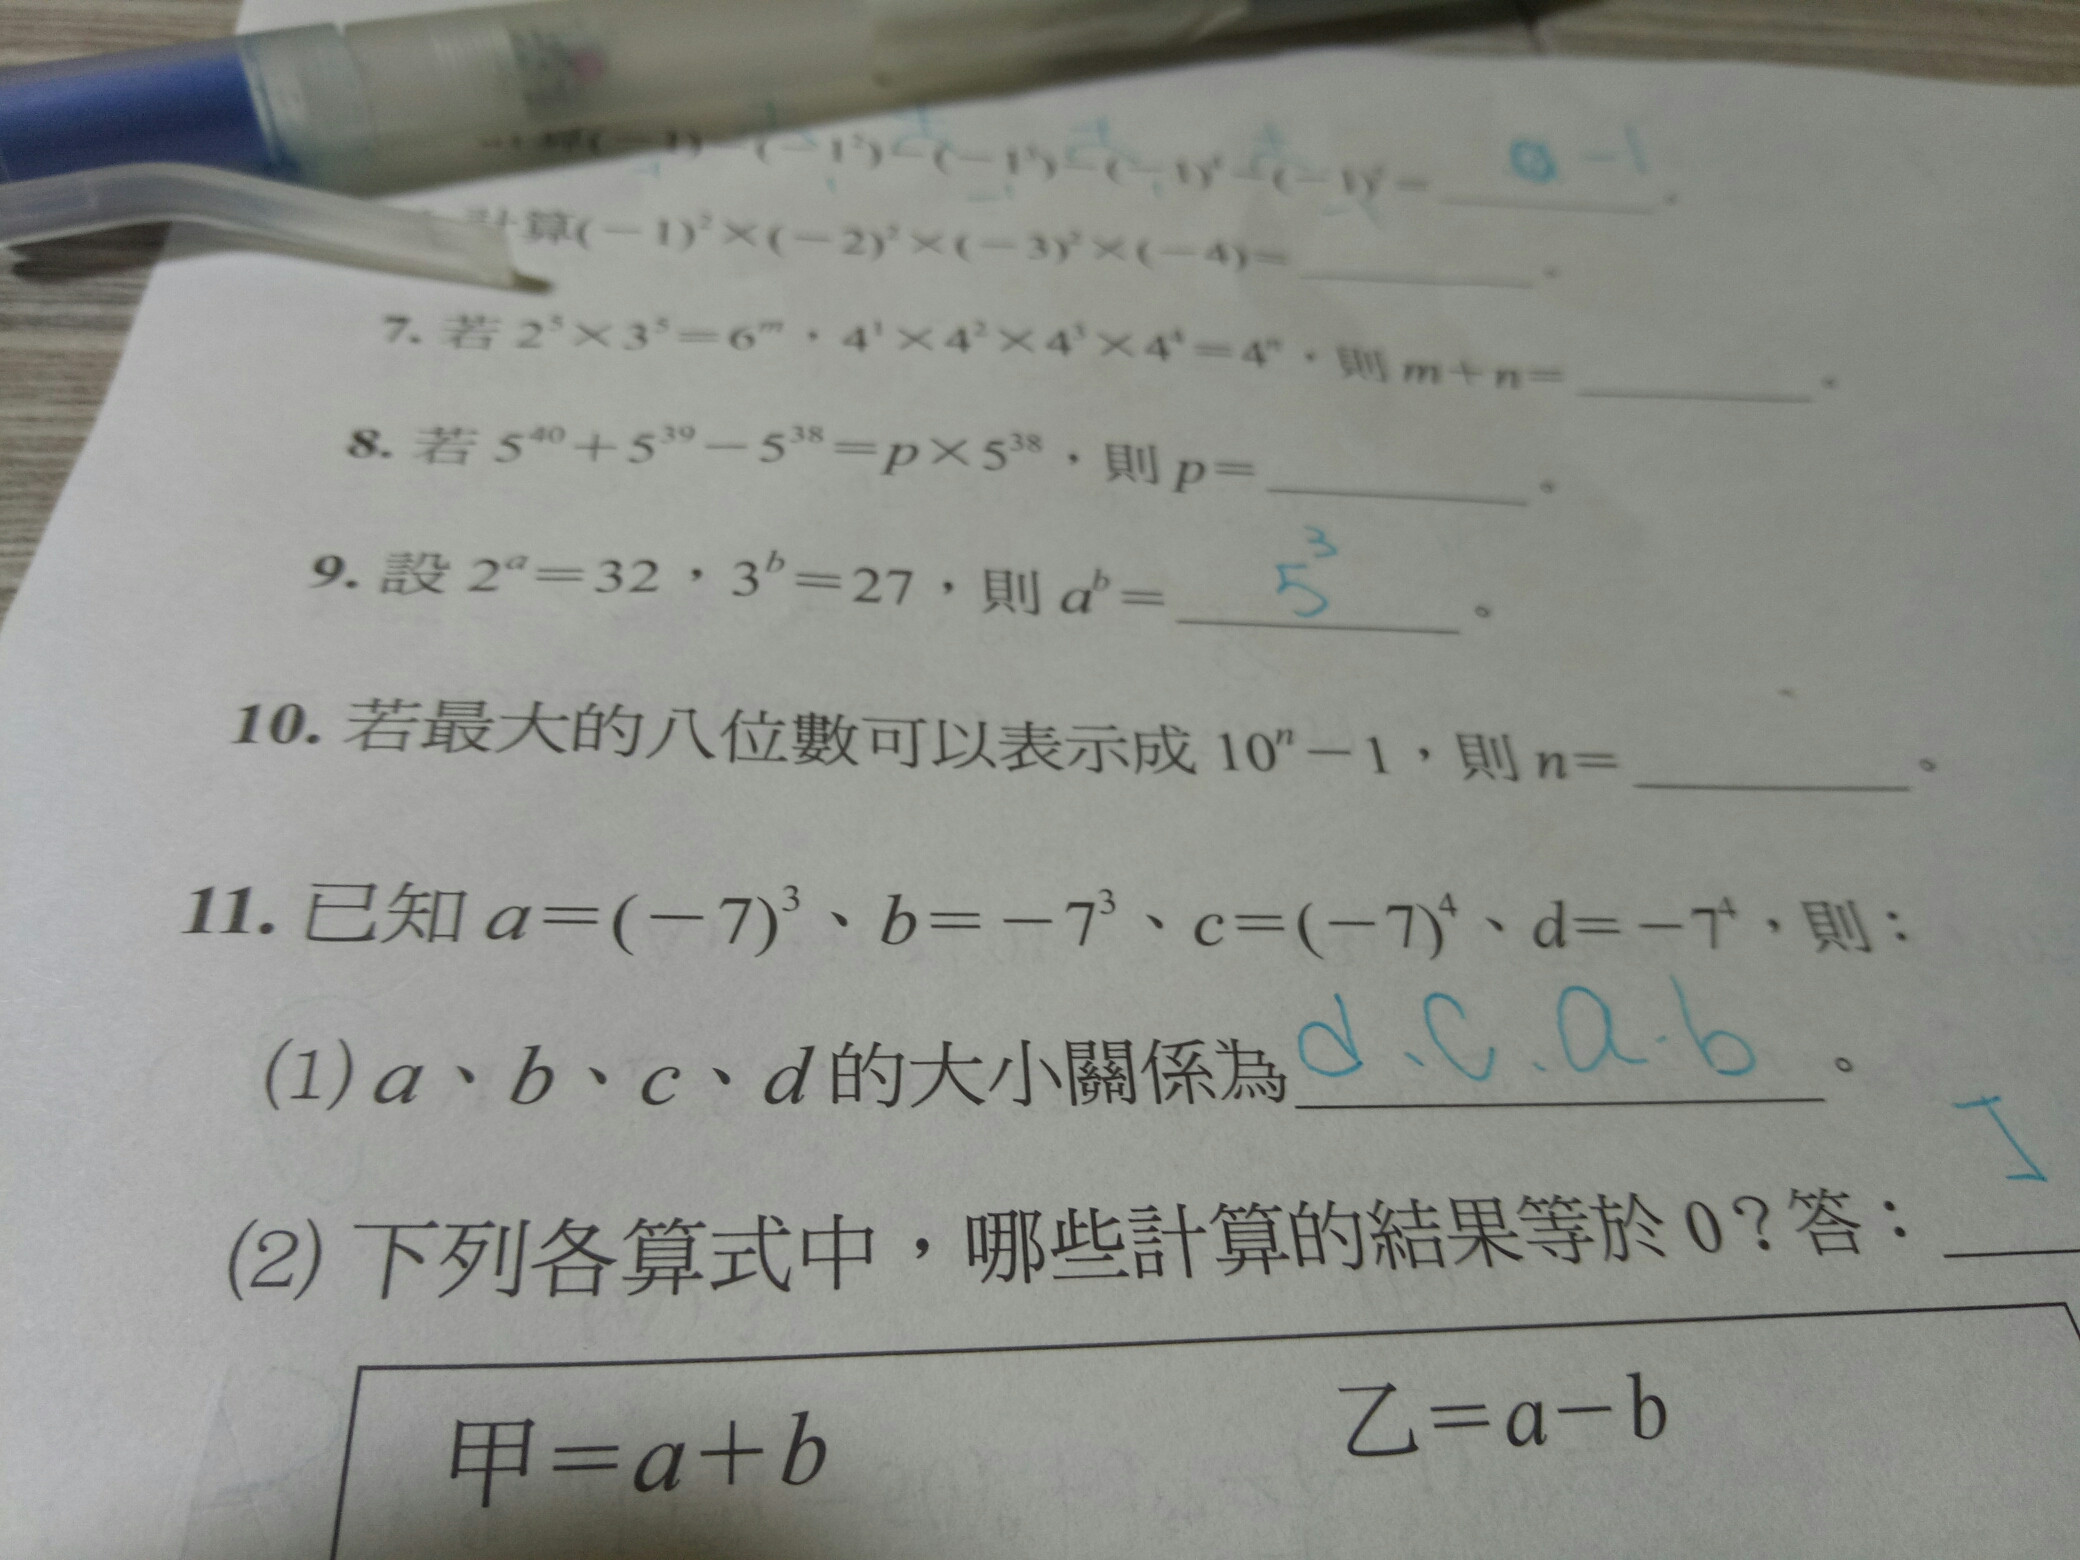 計算(−1)²×(−2)²×(−3)²×(−4)=______。
7. 若 2⁵×3⁵=6ᵐ，4¹×4²×4³×4⁴=4ⁿ，則 m+n=______。
8. 若 5⁴⁰+5³⁹−5³⁸=p×5³⁸，則 p=______。
9. 設 2ᵃ=32，3ᵇ=27，則 aᵇ= 5³ 。
10. 若最大的八位數可以表示成 10ⁿ−1，則 n=______。
11. 已知 a=(−7)³、b=−7³、c=(−7)⁴、d=−7⁴，則：
(1) a、b、c、d 的大小關係為 d、c、a、b 。
(2) 下列各算式中，哪些計算的結果等於 0？答：
甲=a+b 乙=a−b